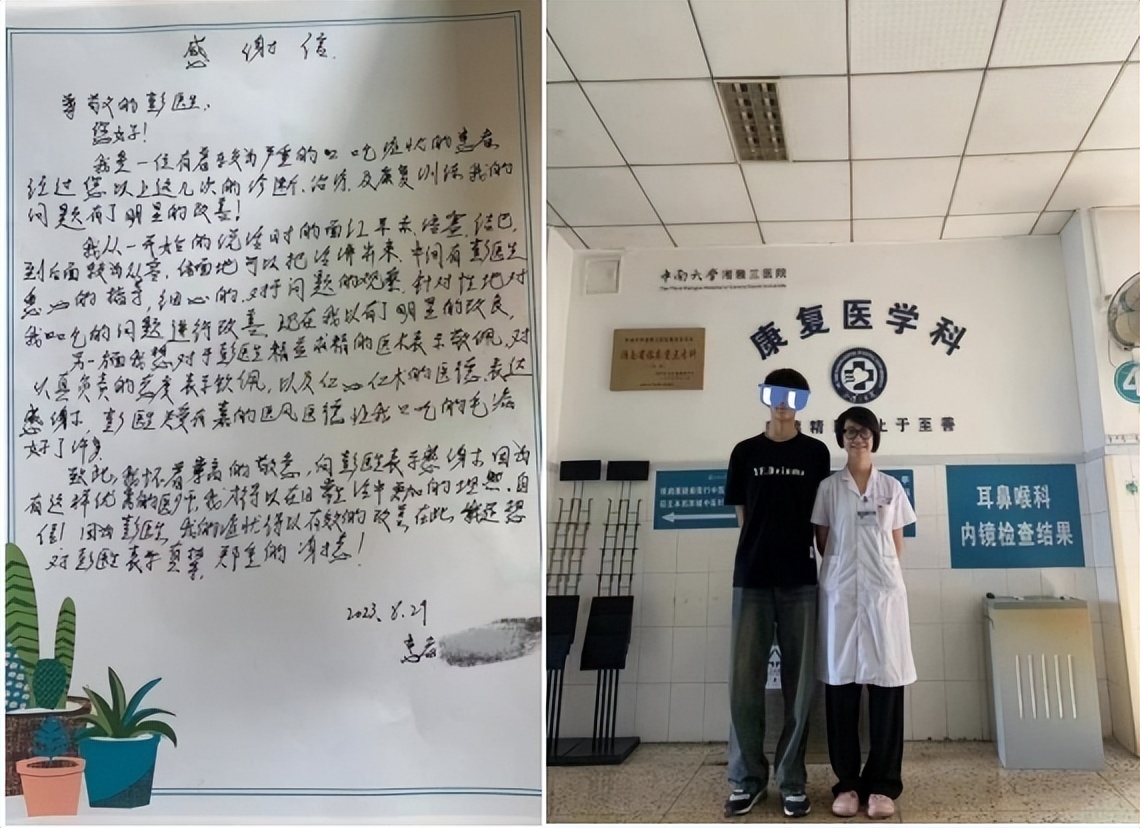 感谢信
尊敬的彭医生,
您好!
我是一位有着较为严重的口吃症状的患者,
经过您以上这几次的诊断、治疗及康复训练我的
问题有了明显的改善!
我从一开始的说话时的面红耳赤、结巴,
到后面较为从容、地可以把话讲出来,中间有彭医生
悉心的指导,细心的对于问题的观察,针对性地对
我口吃的问题进行改善,现在我以有了明显的改良,
另一方面我想对于彭医生精益求精的医术表示敬佩,对
认真负责的态度表示钦佩,以及仁心仁术的医德表达
感谢,彭医生的医风医德让我口吃的毛病
好了许多
致此,我怀着崇高的敬意,向彭医生表示感谢,因为
有这样优秀的医师,我才得以在日常生活中更加的坦然、自
信!因为彭医生,我的症状得以有效的改善,在此,我还想
对彭医生表示真挚、郑重的
2023.8.29
患者
中南大学湘雅三医院
The Third Xiangya Hospital of Central South University
康复医学科
湖南省临床重点专科
精 止于至善
耳鼻喉科
内镜检查结果
4